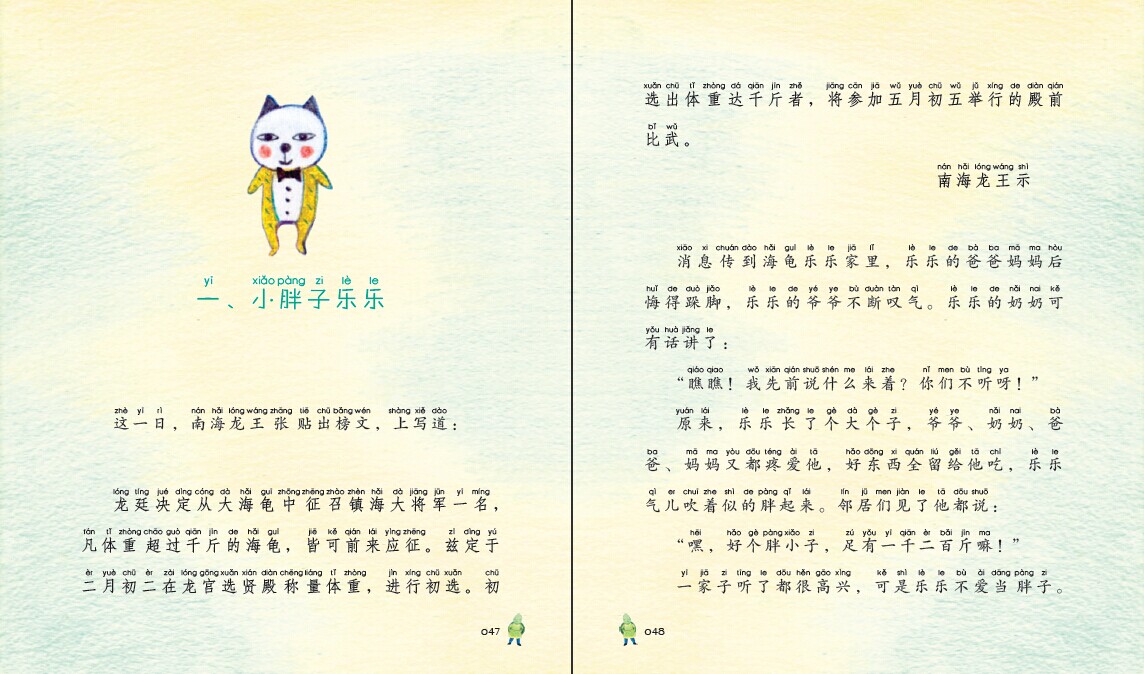 yí xiǎo pàng zi lè le
一、小胖子乐乐
zhè yí rì nán hǎi lóng wáng zhāng tiē chū bǎng wén shàng xiě dào
这一日，南海龙王张贴出榜文，上写道：
lóng tíng jué dìng cóng dà hǎi guī zhōng zhēng zhào zhèn hǎi dà jiāng jūn yì míng
龙廷决定从大海龟中征召镇海大将军一名，
fán tǐ zhòng chāo guò qiān jīn de hǎi guī jiē kě qián lái yìng zhēng zī dìng yú
凡体重超过千斤的海龟，皆可前来应征。兹定于
èr yuè chū èr zài lóng gōng xuǎn xián diàn chēng liáng tǐ zhòng jìn xíng chū xuǎn chū
二月初二在龙宫选贤殿称量体重，进行初选。初
047
xuǎn chū tǐ zhòng dá qiān jīn zhě jiāng cān jiā wǔ yuè chū wǔ jǔ xíng de diàn qián
选出体重达千斤者，将参加五月初五举行的殿前
bǐ wǔ
比武。
nán hǎi lóng wáng shì
南海龙王示
xiāo xi chuán dào hǎi guī lè le jiā lǐ lè le de bà ba mā ma hòu
消息传到海龟乐乐家里，乐乐的爸爸妈妈后
huǐ de duò jiǎo lè le de yé ye bù duàn tàn qì lè le de nǎi nai kě
悔得跺脚，乐乐的爷爷不断叹气。乐乐的奶奶可
yǒu huà jiǎng le
有话讲了：
qiáo qiao wǒ xiān qián shuō shén me lái zhe nǐ men bù tīng ya
“瞧瞧！我先前说什么来着？你们不听呀！”
yuán lái lè le zhǎng le gè dà gè zi yé ye nǎi nai bà
原来，乐乐长了个大个子，爷爷、奶奶、爸
ba mā ma yòu dōu téng ài tā hǎo dōng xi quán liú gěi tā chī lè le
爸、妈妈又都疼爱他，好东西全留给他吃，乐乐
qì er chuī zhe shì de pàng qǐ lái lín jū men jiàn le tā dōu shuō
气儿吹着似的胖起来。邻居们见了他都说：
hēi hǎo gè pàng xiǎo zi zú yǒu yì qiān èr bǎi jīn ma
“嘿，好个胖小子，足有一千二百斤嘛！”
yí jiā zi tīng le dōu hěn gāo xìng kě shì lè le bù ài dāng pàng zi
一家子听了都很高兴，可是乐乐不爱当胖子。
048